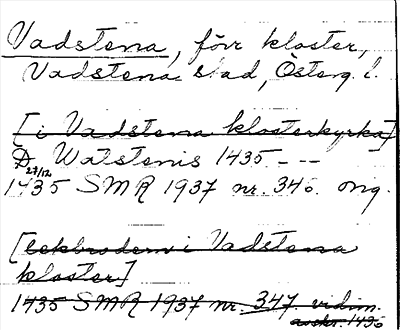 Vadstena, förr kloster,
Vadstena stad, Österg. l.
[i Vadstena klosterkyrka]
D. Watstenis 1435 - --
27/12
1435 SMR 1937 nr. 346. orig.
[lekbrodern i Vadstena
kloster]
1435 SMR 1937 nr. 347. vidim.
avskr. 1436